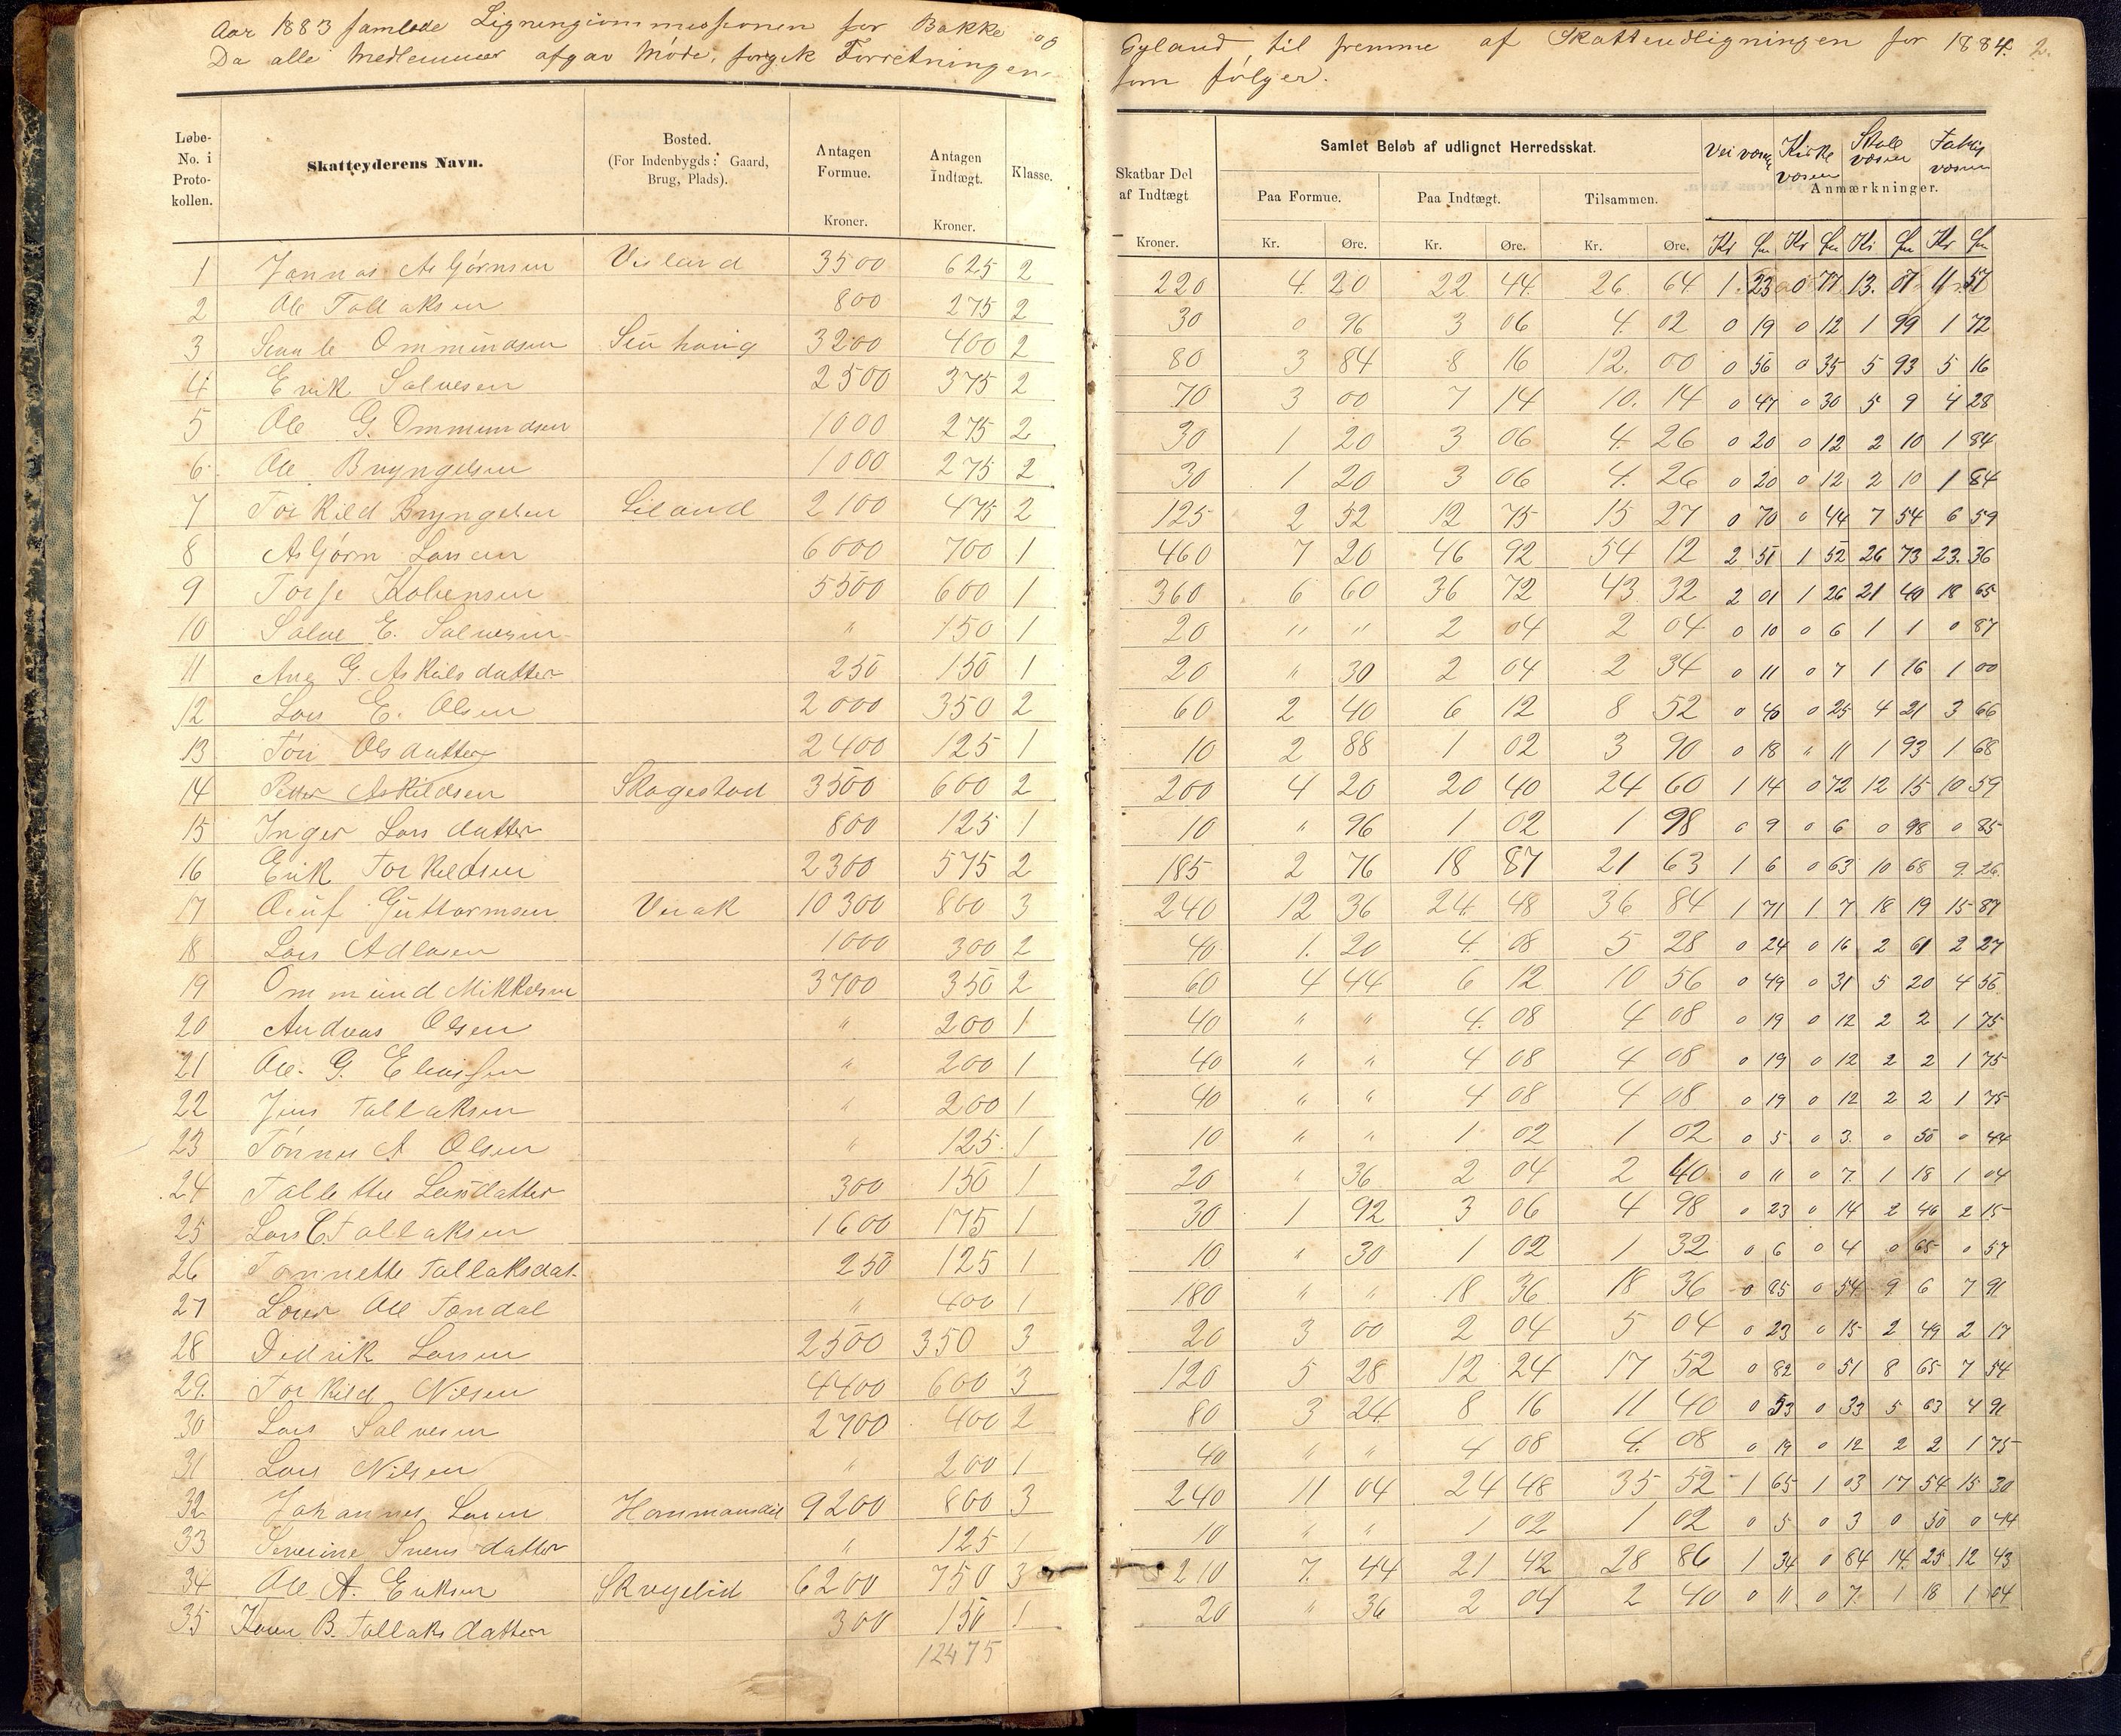 Aar 1883 samlede Ligningscommissionen for Bakke og Gyland, til fremme af Skatteudligningen for 1884. 2.
Da alle Medlemmer afgav Møde, foregik Forretningen som følger.
Løbe-No. i Proto-kollen. Skatteyderens Navn. Bosted. (For Indenbygds: Gaard, Brug, Plads). Antagen Formue. Kroner. Antagen Indtægt. Kroner. Klasse. Skatbar Del af Indtægt Kroner. Samlet Beløb af udlignet Herredsskat. Paa Formue. Kr. Øre. Paa Indtægt. Kr. Øre. Tilsammen. Kr. Øre. Anmærkninger. Veivæsen Kirkevæsen Skolevæsen Fattigvæsen
1 Jonnas Asbjørnsen 3500 625 2 220 4. 20 22 44. 26. 64 1. 23 0 77 13. 07 11. 57
2 Ole Tollaksen 800 275 2 30 0 96 3 06 4. 02 0 19 0 12 1 99 1 72
3 Ommundsen 3200 400 2 80 3 84 8 16 12. 00 0 56 0 35 5 93 5 16
4 Erik Salvesen 2500 375 2 70 3 00 7 14 10. 14 0 47 0 30 5 9 4 28
5 Ole G. Ommundsen 1000 275 2 30 1 20 3 06 4. 26 0 20 0 12 2 10 1 84
6 Ole Bryngelsen 1000 275 2 30 1 20 3 06 4. 26 0 20 0 12 2 10 1 84
7 Torkild Bryngelsen Liland 2100 475 2 125 2 52 12 75 15 27 0 70 0 44 7 54 6 59
8 Asbjørn Larsen 6000 700 1 460 7 20 46 92 54 12 2 51 1 52 26 73 23. 36
9 Torje 5500 600 1 360 6 60 36 72 43 32 2 01 1 26 21 40 18 65
10 Salve E. Salvesen " 150 1 20 " " 2 04 2 04 0 10 0 6 1 1 0 87
11 Ane G. Askildsdatter 250 150 1 20 " 30 2 04 2 34 0 11 0 7 1 16 1 00
12 Lars E. Olsen 2000 350 2 60 2 40 6 12 8 52 0 40 0 25 4 21 3 66
13 Olsdatter 2400 125 1 10 2 88 1 02 3 90 0 18 " 11 1 93 1 68
14 Peder Askildsen Skagestad 3500 600 2 200 4 20 20 40 24 60 1 14 0 72 12 15 10 59
15 Inger Larsdatter 800 125 1 10 " 96 1 02 1 98 0 9 0 6 0 98 0 85
16 Erik Torkildsen 2300 575 2 185 2 76 18 87 21 63 1 6 0 63 10 68 9. 26
17 Guttormsen 10300 800 3 240 12 36 24. 48 36 84 1 71 1. 7 18 19 15 87
18 Lars Adlasen 1000 300 2 40 1. 20 4. 08 5 28 0 24 0 16 2 61 2 27
19 Ommund Mikkelsen 3700 350 2 60 4 44 6 12 10 56 0 49 0 31 5 20 4 55
20 Andreas Olsen " 200 1 40 " " 4. 08 4 08 0 19 0 12 2 2 1 75
21 Ole. G. Eliassen " 200 1 40 " " 4 08 4 08 0 19 0 12 2 2 1 75
22 Jens Tollaksen " 200 1 40 " " 4 08 4 08 0 19 0 12 2 2 1 75
23 Tønnes A Olsen " 125 1 10 " " 1 02 1 02 0 5 0 3. 0 50 0 44
24 Larsdatter 300 150 1 20 " 36 2 04 2 40 0 11 0 7. 1 18 1 04
25 Lars E. Tollaksen 1600 175 1 30 1 92 3 06 4 98 0 23 0 14 2 46 2 15
26 Tonnette Tollaksdat. 250 125 1 10 " 30 1 02 1 32 0 6 0 4 0 65 0 57
27 Ole Tondal " 400 1 180 " " 18 36 18 36 0 85 0 54 9 6 7 91
28 Didrik Larsen 2500 350 3 20 3 00 2 04 5 04 0 23 0 15 2 49 2 17
29. Torkild Nilsen 4400 600 3 120 5 28 12 24 17 52 0 82 0 51 8 65 7 54
30 Lars Salvesen 2700 400 2 80 3 24 8 16 11 40 0 53 0 33 5 63 4 91
31 Lars Nilsen " 200 1 40 " " 4 08 4. 08 0 19 0 12 2 2 1 75
32 Johannes Larsen 9200 800 3 240 11 04 24 48 35 52 1 65 1 03 17 54 15 30
33 Severine Svensdatter " 125 1 10 " " 1 02 1 02 0 5 0 3 0 50 0 44
34 Ole A. Eriksen Skregelid 6200 750 3 210 7. 44 21 42 28 86 1 34 0 84 14. 25 12 43
35 Karen B. Tollaksdatter 300 150 1 20 " 36 2 04 2 40 0 11 0 7. 1 18 1 04
12475